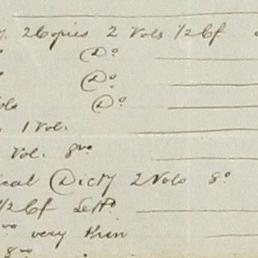 2 Copies 2 Vols 1/2 Cf
Do
Do
Do
1 Vol.
Vol. 8vo
Dicty 2 Vols 8o
1/2 Cf
very thin
8vo